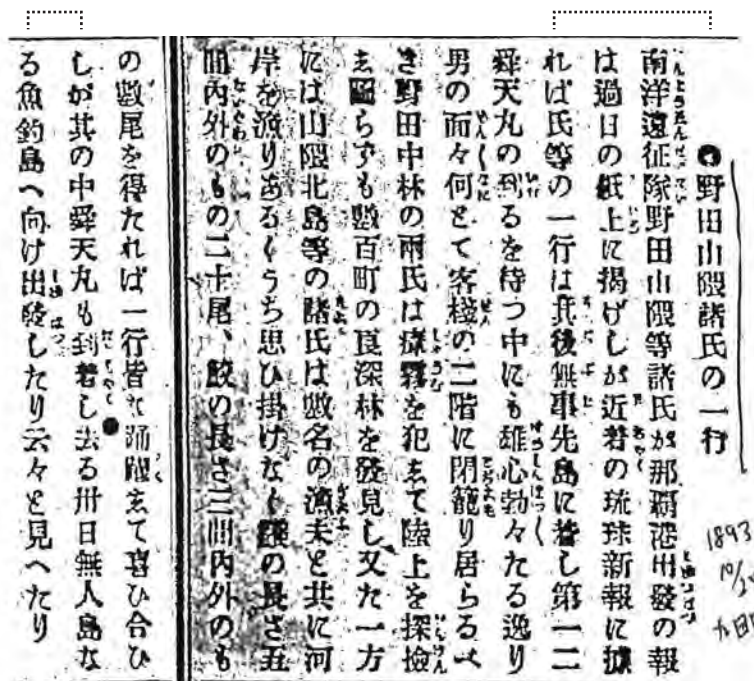 野田山隈諸氏の一行
南洋遠征隊野田山隈等諸氏が那覇港出發の報
は過日の紙上に掲げしが近着の琉球新報に據
れば氏等の一行は其後無事先島に着し第一二
舜天丸の到るを待つ中にも雄心勃々たる逸り
男の面々何とて客棧の二階に閉籠り居らるべ
き野田中林の兩氏は瘴霧を犯して陸上を探撿
し圖らずも數百町の良深林を發見し又た一方
には山隈北島等の諸氏は數名の漁夫と共に河
岸を漁りあるくうち思ひ掛けなく鰻の長さ五
間内外のもの二十尾、鮫の長さ三間内外のも
の數尾を得たれば一行皆な踊躍して喜び合ひ
しが其の中舜天丸も到着し去る卅日無人島な
る魚釣島へ向け出發したり云々と見へたり
1893